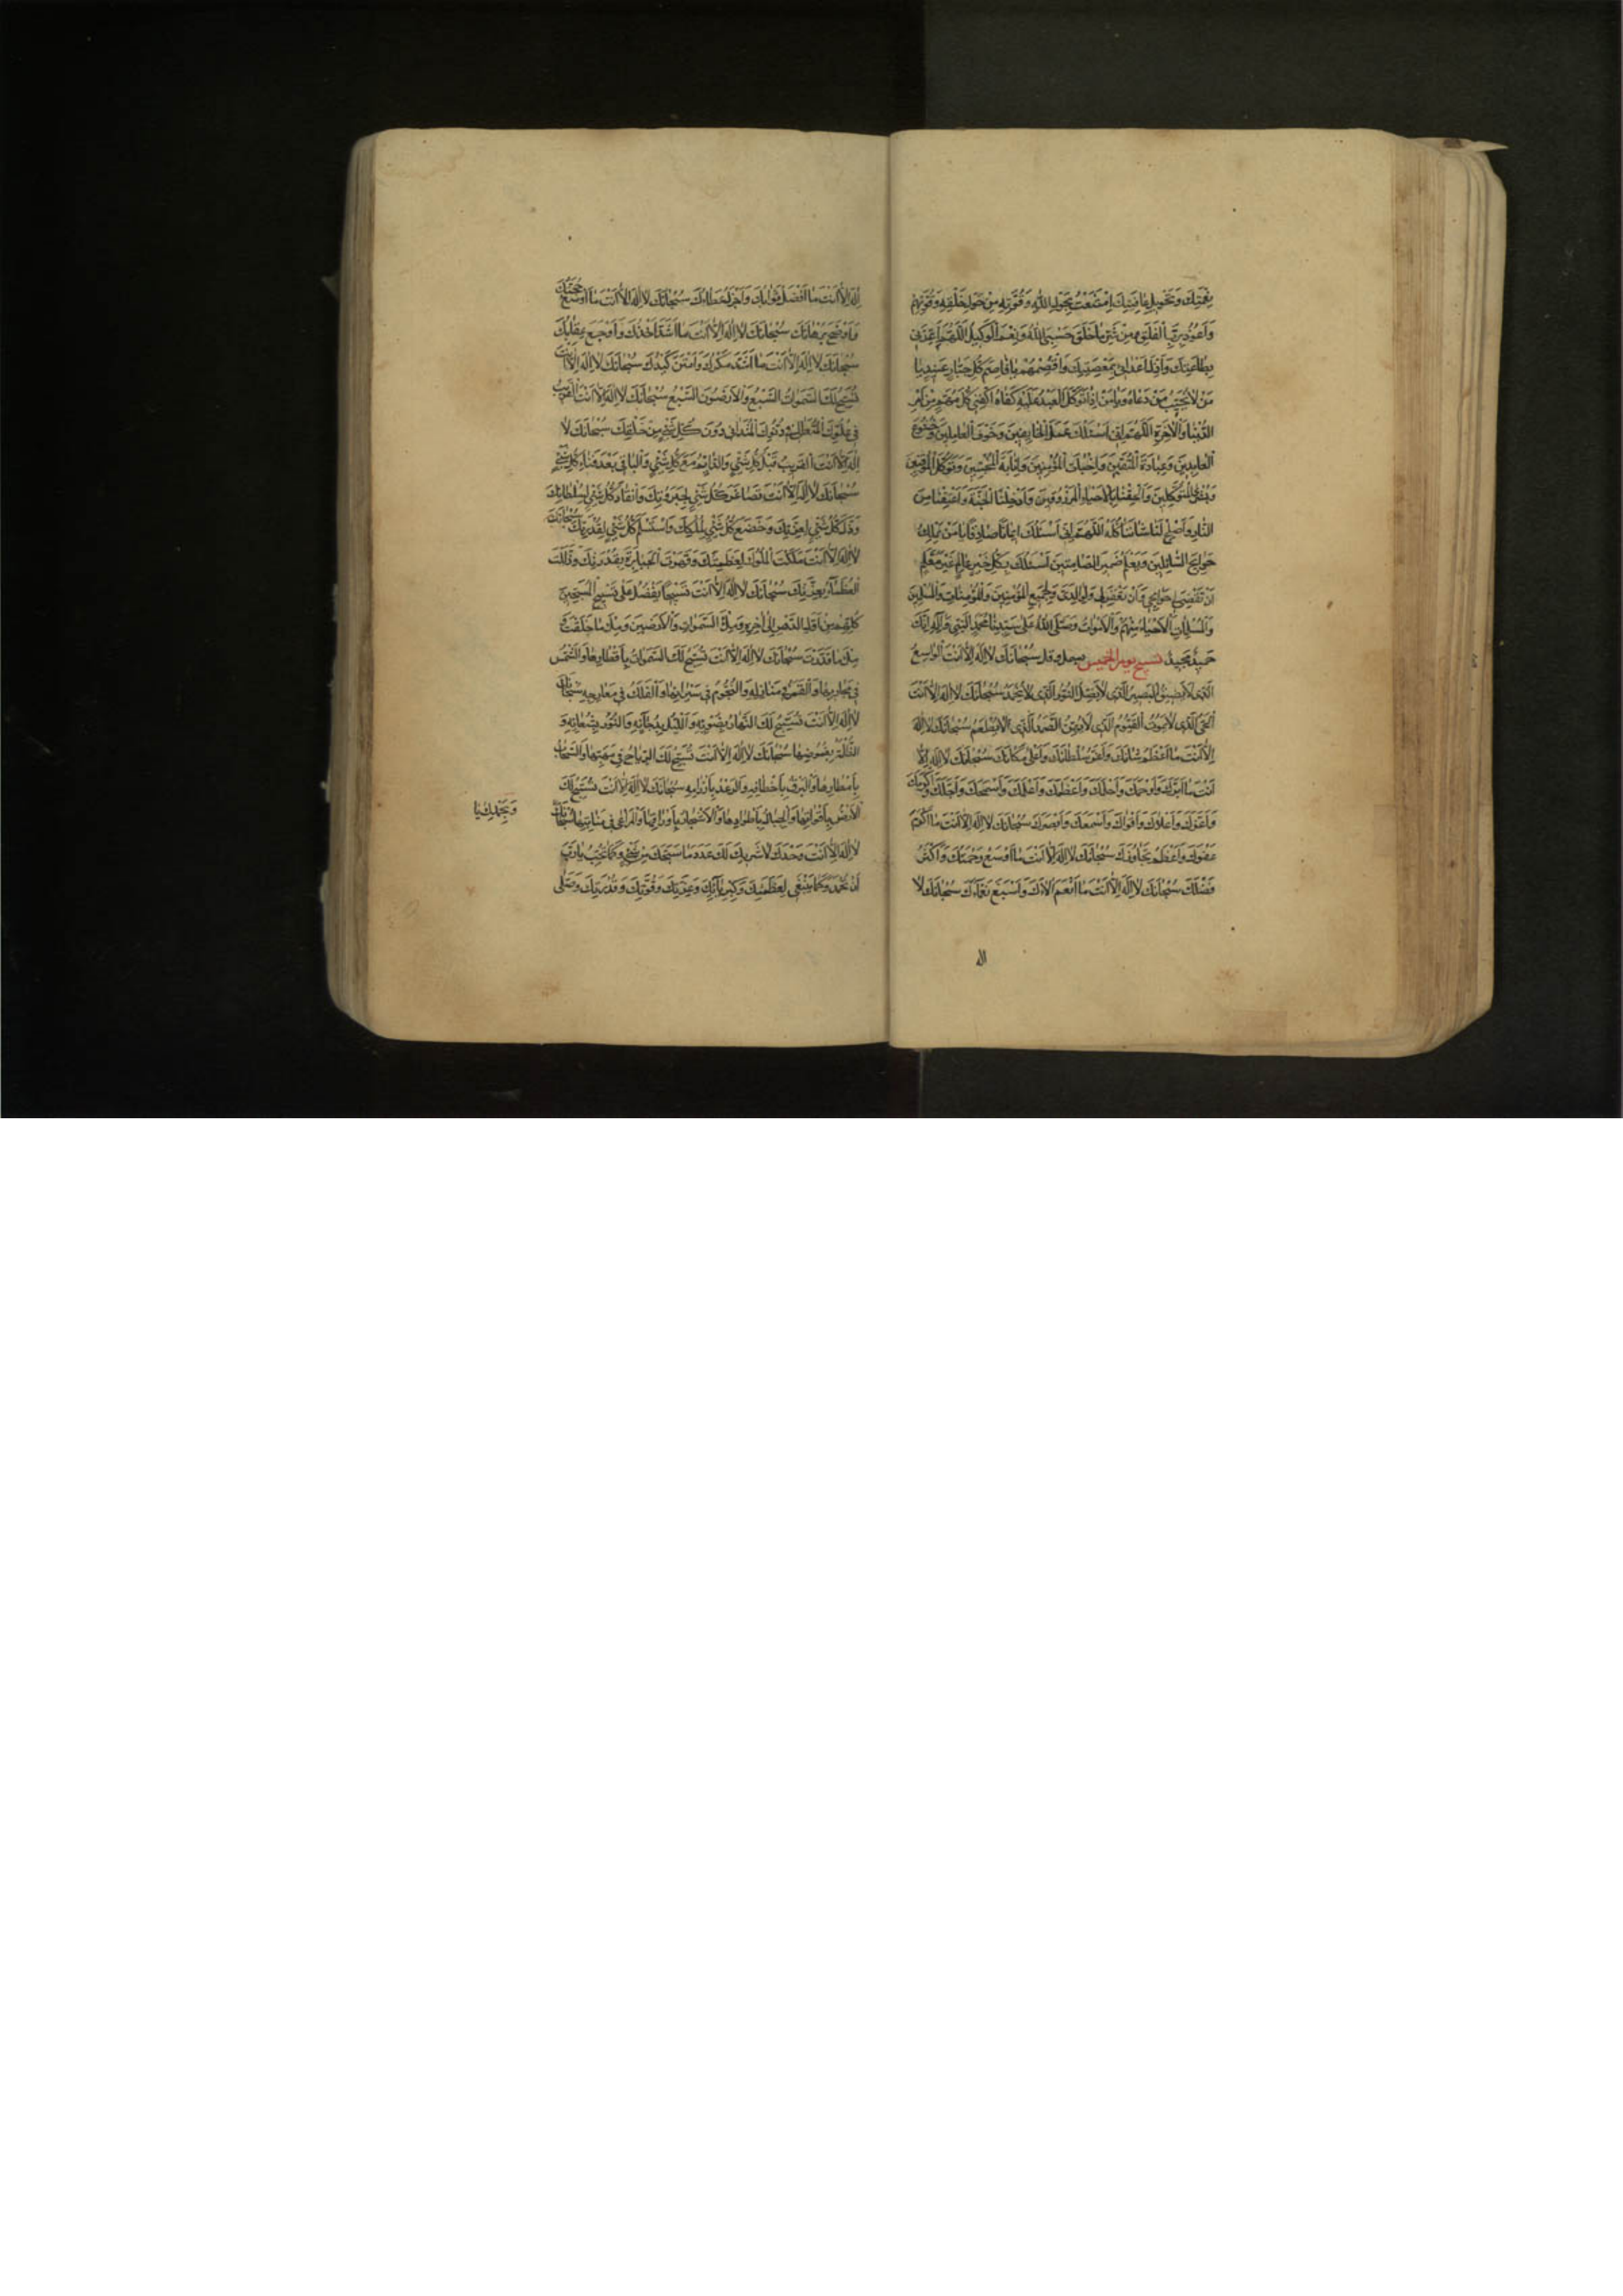 نِعْمَتِكَ وَتَحْوِيلِ عَافِيَتِكَ اِمْتَنَعْتُ بِحَوْلِ اللّٰهِ وَقُوَّتِهِ مِنْ حَوْلِ خَلْقِهِ وَقُوَّتِهِمْ
وَاَعُوذُ بِرَبِّ الْفَلَقِ مِنْ شَرِّ مَا خَلَقَ حَسْبِيَ اللّٰهُ وَنِعْمَ الْوَكِيلُ اَللّٰهُمَّ اَعِزَّنِي
بِطَاعَتِكَ وَاَذِلَّ اَعْدَائِي بِمَعْصِيَتِكَ وَاقْصِمْهُمْ يَا قَاصِمَ كُلِّ جَبَّارٍ عَنِيدٍ يَا
مَنْ لَا يُخَيِّبُ مَنْ دَعَاهُ وَيَا مَنْ اِذَا تَوَكَّلَ الْعَبْدُ عَلَيْهِ كَفَاهُ اكْفِنِي كُلَّ مُهِمٍّ مِنْ اَمْرِ
الدُّنْيَا وَالْاٰخِرَةِ اَللّٰهُمَّ اِنِّي اَسْئَلُكَ عَمَلَ الْخَائِفِينَ وَخَوْفَ الْعَامِلِينَ وَخُشُوعَ
الْعَابِدِينَ وَعِبَادَةَ الْمُتَّقِينَ وَاِخْبَاتَ الْمُؤْمِنِينَ وَاِنَابَةَ الْمُخْبِتِينَ وَتَوَكُّلَ الْمُوقِنِينَ
وَبُشْرَى الْمُتَوَكِّلِينَ وَاَلْحِقْنَا بِالْاَحْيَاءِ الْمَرْزُوقِينَ وَاَدْخِلْنَا الْجَنَّةَ وَاَعْتِقْنَا مِنَ
النَّارِ وَاَصْلِحْ لَنَا شَأْنَنَا كُلَّهُ اَللّٰهُمَّ اِنِّي اَسْئَلُكَ اِيمَانًا صَادِقًا يَا مَنْ يَمْلِكُ
حَوَائِجَ السَّائِلِينَ وَيَعْلَمُ ضَمِيرَ الصَّامِتِينَ اَسْئَلُكَ بِكُلِّ خَيْرٍ عَالِمٌ غَيْرُ مُعَلَّمٍ
اَنْ تَقْضِيَ لِي حَوَائِجِي وَاَنْ تَغْفِرَ لِي وَلِوَالِدَيَّ وَلِجَمِيعِ الْمُؤْمِنِينَ وَالْمُؤْمِنَاتِ وَالْمُسْلِمِينَ
وَالْمُسْلِمَاتِ الْاَحْيَاءِ مِنْهُمْ وَالْاَمْوَاتِ وَصَلَّى اللّٰهُ عَلَى سَيِّدِنَا مُحَمَّدٍ النَّبِيِّ وَاٰلِهِ اِنَّكَ
حَمِيدٌ مَجِيدٌ تسبيح يوم الخميس سُبْحَانَكَ لَا اِلٰهَ اِلَّا اَنْتَ الْوَاسِعُ
الَّذِي لَا يَضِيقُ الْبَصِيرُ الَّذِي لَا يَضِلُّ النُّورُ الَّذِي لَا يَخْمَدُ سُبْحَانَكَ لَا اِلٰهَ اِلَّا اَنْتَ
الْحَيُّ الَّذِي لَا يَمُوتُ الْقَيُّومُ الَّذِي لَا يَهِنُ الصَّمَدُ الَّذِي لَا يُطْعَمُ سُبْحَانَكَ لَا اِلٰهَ
اِلَّا اَنْتَ مَا اَعْظَمَ شَانَكَ وَاَعَزَّ سُلْطَانَكَ وَاَعْلَى مَكَانَكَ سُبْحَانَكَ لَا اِلٰهَ اِلَّا
اَنْتَ مَا اَبَرَّكَ وَاَرْحَمَكَ وَاَحْلَمَكَ وَاَعْظَمَكَ وَاَعْلَمَكَ وَاَسْمَحَكَ وَاَجَلَّكَ وَاَكْرَمَكَ
وَاَعَزَّكَ وَاَعْلَاكَ وَاَقْوَاكَ وَاَسْمَعَكَ وَاَبْصَرَكَ سُبْحَانَكَ لَا اِلٰهَ اِلَّا اَنْتَ مَا اَكْرَمَ
عَفْوَكَ وَاَعْظَمَ تَجَاوُزَكَ سُبْحَانَكَ لَا اِلٰهَ اِلَّا اَنْتَ مَا اَوْسَعَ رَحْمَتَكَ وَاَكْثَرَ
فَضْلَكَ سُبْحَانَكَ لَا اِلٰهَ اِلَّا اَنْتَ مَا اَنْعَمَ اٰلَاءَكَ وَاَسْبَغَ نَعْمَاءَكَ سُبْحَانَكَ لَا
اله
اِلٰهَ اِلَّا اَنْتَ مَا اَفْضَلَ ثَوَابَكَ وَاَجْزَلَ عَطَاءَكَ سُبْحَانَكَ لَا اِلٰهَ اِلَّا اَنْتَ مَا اَوْسَعَ حُجَّتَكَ
وَاَوْضَحَ بُرْهَانَكَ سُبْحَانَكَ لَا اِلٰهَ اِلَّا اَنْتَ مَا اَشَدَّ اَخْذَكَ وَاَوْجَعَ عِقَابَكَ
سُبْحَانَكَ لَا اِلٰهَ اِلَّا اَنْتَ مَا اَشَدَّ مَكْرَكَ وَاَمْتَنَ كَيْدَكَ سُبْحَانَكَ لَا اِلٰهَ اِلَّا اَنْتَ
تُسَبِّحُ لَكَ السَّمٰوَاتُ السَّبْعُ وَالْاَرَضُونَ السَّبْعُ سُبْحَانَكَ لَا اِلٰهَ اِلَّا اَنْتَ الْقَرِيبُ
فِي عُلُوِّكَ الْمُتَعَالِي فِي دُنُوِّكَ الْمُتَدَانِي دُونَ كُلِّ شَيْءٍ مِنْ خَلْقِكَ سُبْحَانَكَ لَا
اِلٰهَ اِلَّا اَنْتَ الْقَرِيبُ قَبْلَ كُلِّ شَيْءٍ وَالدَّائِمُ مَعَ كُلِّ شَيْءٍ وَالْبَاقِي بَعْدَ فَنَاءِ كُلِّ شَيْءٍ
سُبْحَانَكَ لَا اِلٰهَ اِلَّا اَنْتَ تَصَاغَرَ كُلُّ شَيْءٍ لِجَبَرُوتِكَ وَانْقَادَ كُلُّ شَيْءٍ لِسُلْطَانِكَ
وَذَلَّ كُلُّ شَيْءٍ لِعِزَّتِكَ وَخَضَعَ كُلُّ شَيْءٍ لِمُلْكِكَ وَاسْتَسْلَمَ كُلُّ شَيْءٍ لِقُدْرَتِكَ سُبْحَانَكَ
لَا اِلٰهَ اِلَّا اَنْتَ مَلَكْتَ الْمُلُوكَ بِعَظَمَتِكَ وَقَهَرْتَ الْجَبَابِرَةَ بِقُدْرَتِكَ وَذَلَّلْتَ
الْعُظَمَاءَ بِعِزَّتِكَ سُبْحَانَكَ لَا اِلٰهَ اِلَّا اَنْتَ تَسْبِيحًا يَفْضُلُ عَلَى تَسْبِيحِ الْمُسَبِّحِينَ
كُلِّهِمْ مِنْ اَوَّلِ الدَّهْرِ اِلَى اٰخِرِهِ وَمِلْءَ السَّمٰوَاتِ وَالْاَرَضِينَ وَمِلْءَ مَا خَلَقْتَ وَ
مِلْءَ مَا قَدَّرْتَ سُبْحَانَكَ لَا اِلٰهَ اِلَّا اَنْتَ تُسَبِّحُ لَكَ السَّمٰوَاتُ بِاَقْطَارِهَا وَالشَّمْسُ
فِي مَجَارِيهَا وَالْقَمَرُ فِي مَنَازِلِهِ وَالنُّجُومُ فِي سَيَرَانِهَا وَالْفَلَكُ فِي مَعَارِجِهِ سُبْحَانَكَ
لَا اِلٰهَ اِلَّا اَنْتَ يُسَبِّحُ لَكَ النَّهَارُ بِضَوْئِهِ وَاللَّيْلُ بِدُجَائِهِ وَالنُّورُ بِشُعَاعِهِ وَ
الظُّلْمَةُ بِغُمُوضِهَا سُبْحَانَكَ لَا اِلٰهَ اِلَّا اَنْتَ تُسَبِّحُ لَكَ الرِّيَاحُ فِي مَهَبِّهَا وَالسَّحَابُ
بِاَمْطَارِهَا وَالْبَرْقُ بِاَخْطَافِهِ وَالرَّعْدُ بِاِرْزَامِهِ سُبْحَانَكَ لَا اِلٰهَ اِلَّا اَنْتَ تُسَبِّحُ لَكَ
الْاَرْضُ بِاَقْوَاتِهَا وَالْجِبَالُ بِاَطْوَادِهَا وَالْاَشْجَارُ بِاَوْرَاقِهَا وَالْمَرَاعِي فِي مَنَابِتِهَا سُبْحَانَكَ
وَبِحَمْدِكَ يَا
لَا اِلٰهَ اِلَّا اَنْتَ وَحْدَكَ لَا شَرِيكَ لَكَ عَدَدَ مَا سَبَّحَكَ مِنْ شَيْءٍ وَكَمَا تُحِبُّ يَا رَبِّ
اَنْ تُحْمَدَ وَكَمَا يَنْبَغِي لِعَظَمَتِكَ وَكِبْرِيَائِكَ وَعِزَّتِكَ وَقُوَّتِكَ وَقُدْرَتِكَ وَصَلَّى